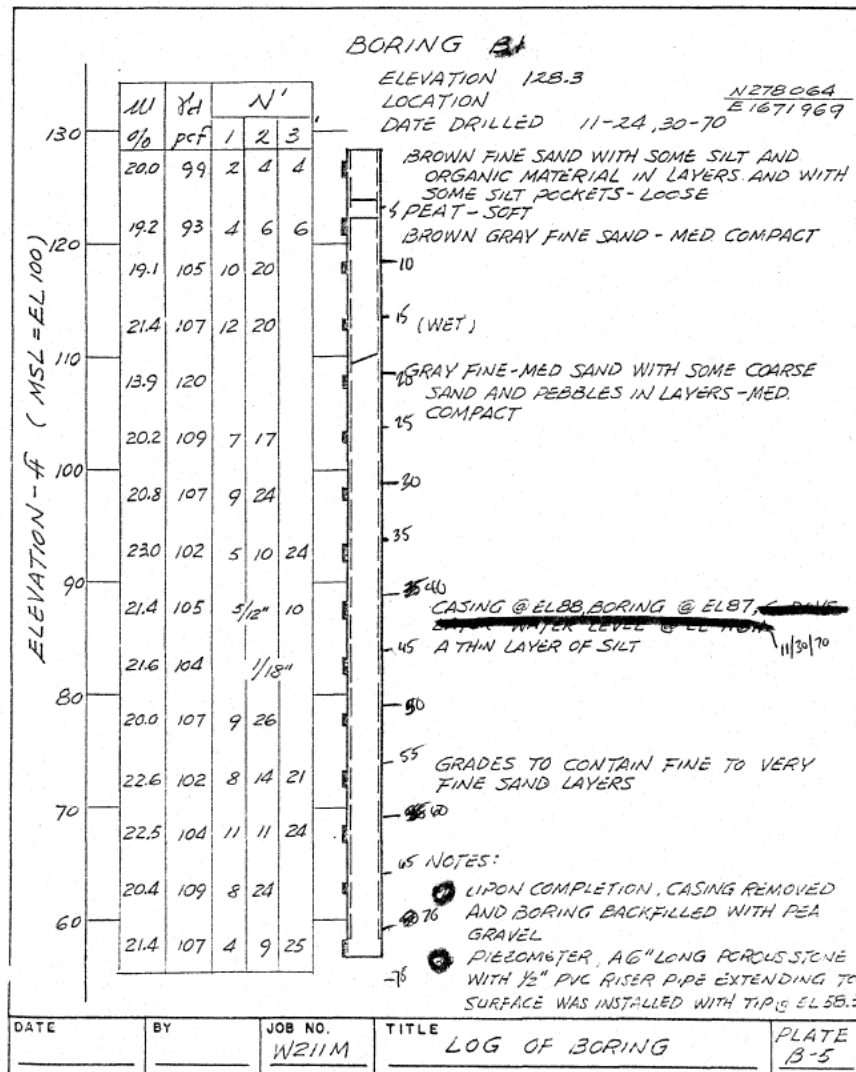 BORING B1
ELEVATION 128.3
LOCATION N278064
E1671969
DATE DRILLED 11-24,30-70
ELEVATION - ft ( MSL = EL 100)
130
120
110
100
90
80
70
60
W % γd pcf N' 1 2 3
20.0 99 2 4 4
19.2 93 4 6 6
19.1 105 10 20
21.4 107 12 20
13.9 120
20.2 109 7 17
20.8 107 9 24
23.0 102 5 10 24
21.4 105 5/12" 10
21.6 104 1/18"
20.0 107 9 26
22.6 102 8 14 21
22.5 104 11 11 24
20.4 109 8 24
21.4 107 4 9 25
BROWN FINE SAND WITH SOME SILT AND
ORGANIC MATERIAL IN LAYERS AND WITH
SOME SILT POCKETS - LOOSE
5 PEAT - SOFT
BROWN GRAY FINE SAND - MED. COMPACT
10
15 (WET)
20 GRAY FINE-MED SAND WITH SOME COARSE
SAND AND PEBBLES IN LAYERS - MED.
COMPACT
25
30
35
40
CASING @ EL88, BORING @ EL87,
WATER LEVEL @ EL
11/30/70
45 A THIN LAYER OF SILT
50
55 GRADES TO CONTAIN FINE TO VERY
FINE SAND LAYERS
60
65 NOTES:
UPON COMPLETION, CASING REMOVED
70 AND BORING BACKFILLED WITH PEA
GRAVEL
PIEZOMETER, A 6" LONG POROUS STONE
75 WITH 1/2" PVC RISER PIPE EXTENDING TO
SURFACE WAS INSTALLED WITH TIP @ EL 58.
DATE BY JOB NO. W211M TITLE LOG OF BORING PLATE B-5